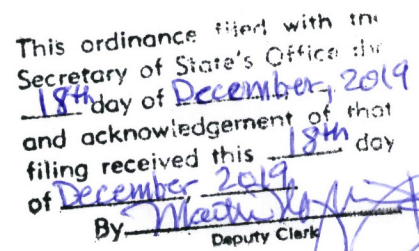 This ordinance filed with the
Secretary of State's Office the
18th day of December, 2019
and acknowledgement of that
filing received this 18th day
of December 2019
By
Deputy Clerk